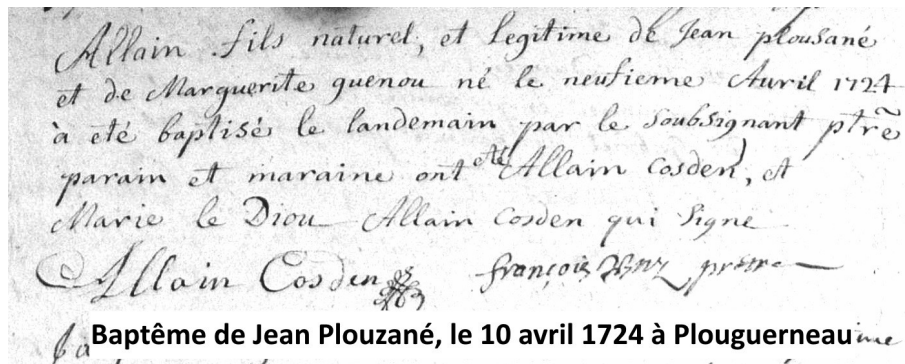 Allain fils naturel, et Legitime de Jean plousané
et de Marguerite guenou né le neufieme Avuril 1724
à eté baptisé le landemain par le Soubsignant ptre
parain et maraine ont eté Allain Cosden, et
Marie le Diou Allain Cosden qui Signe
Allain Cosden françois pretre
Baptême de Jean Plouzané, le 10 avril 1724 à Plouguerneau